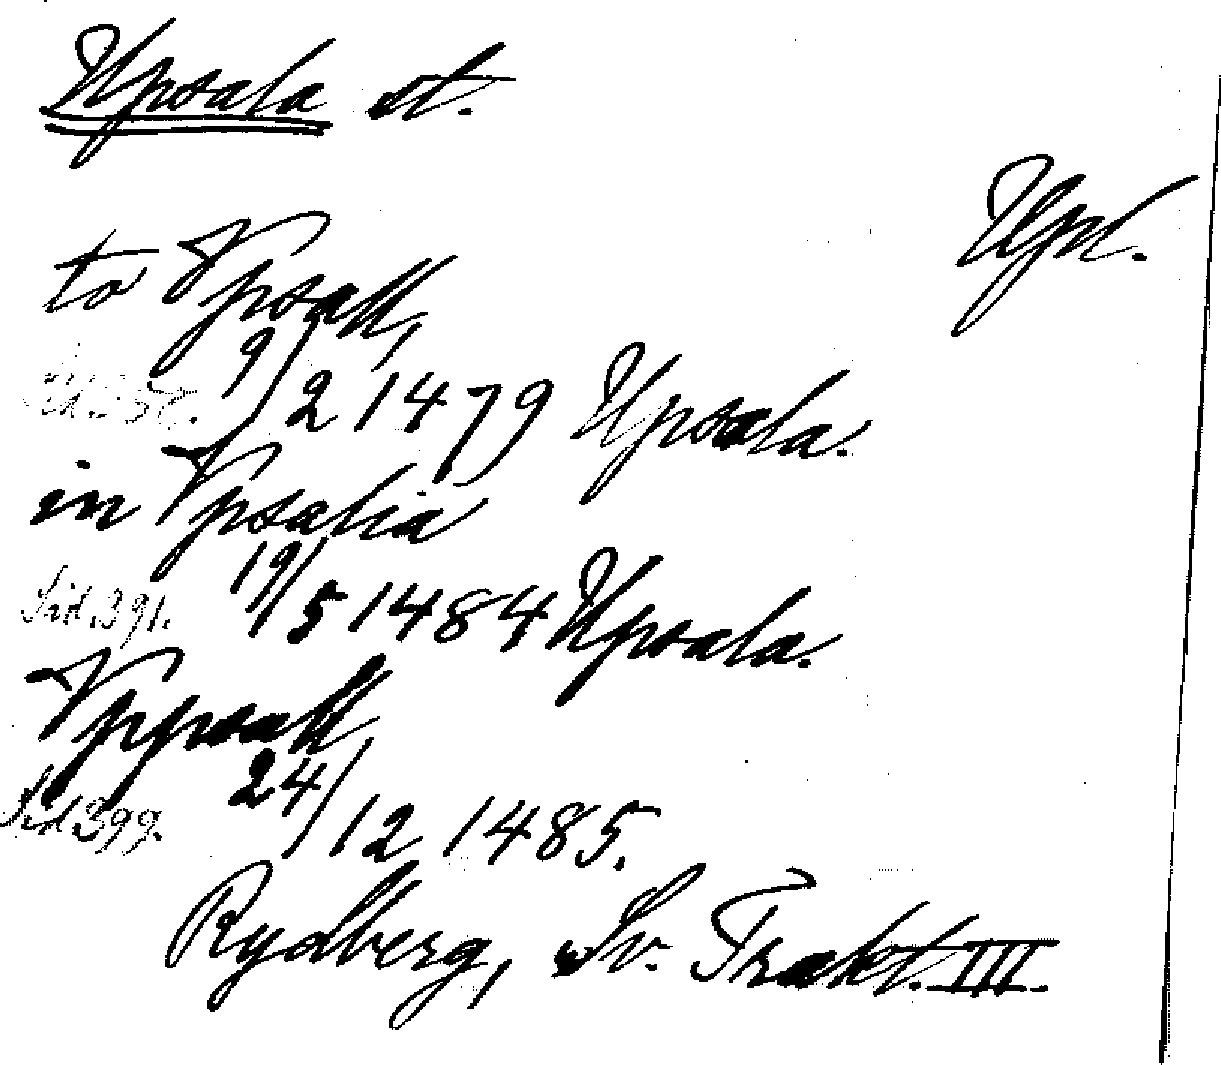 Upsala st.
Upl.
to Vpsall,
9/2 1479 Upsala.
in Vpsalia
Sid. 391. 19/5 1484 Upsala.
Vppsall,
Sid. 399. 24/12 1485.
Rydberg, Sv. Trakt. III.